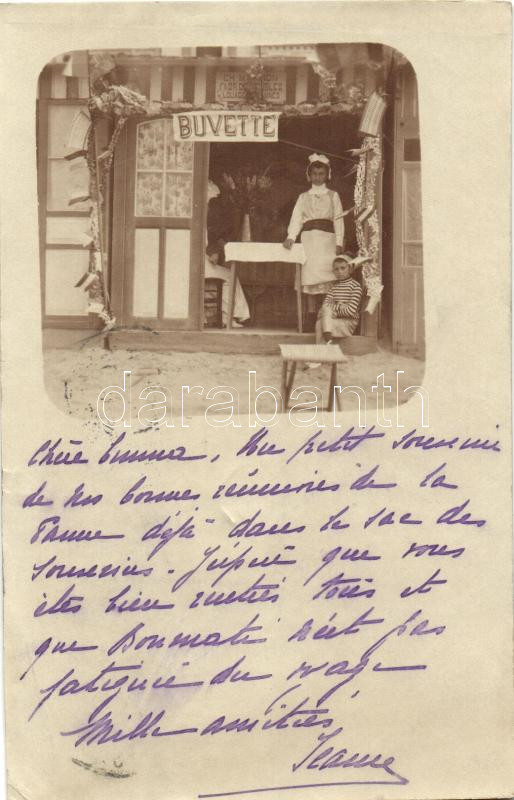 CH. M
BUVETTE
darabanth
Chère Emma, Un petit souvenir
de nos bonnes réunions de la
Panne déjà dans le sac des
souvenirs. J'espère que vous
êtes bien rentrés tous et
que n'est pas
fatiguée du voyage
Mille amitiés,
Jeanne